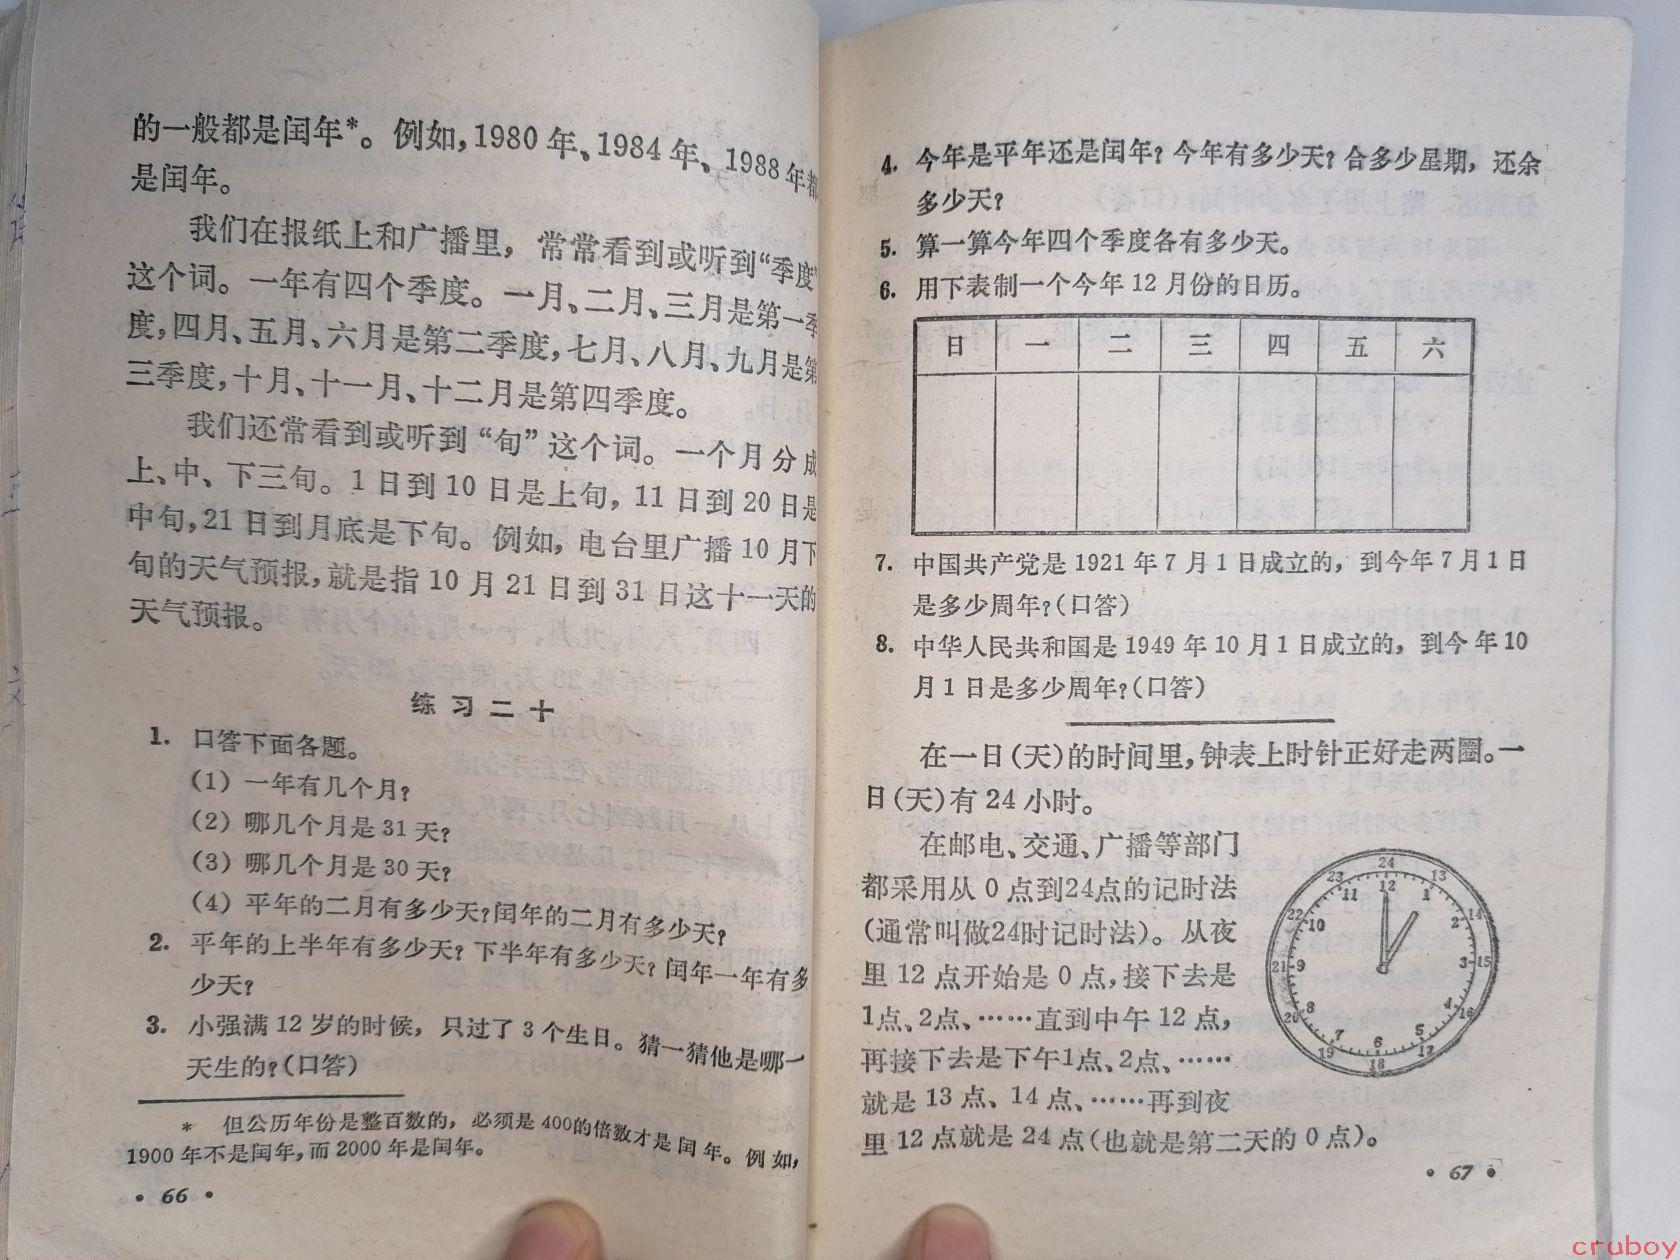 的一般都是闰年*。例如,1980年、1984年、1988年都
是闰年。
我们在报纸上和广播里，常常看到或听到“季度”
这个词。一年有四个季度。一月、二月、三月是第一季
度,四月、五月、六月是第二季度,七月、八月、九月是第
三季度,十月、十一月、十二月是第四季度。
我们还常看到或听到“旬”这个词。一个月分成
上、中、下三旬。1日到10日是上旬，11日到20日是
中旬,21日到月底是下旬。例如,电台里广播10月下
旬的天气预报,就是指10月21日到31日这十一天的
天气预报。
练习二十
1. 口答下面各题。
(1) 一年有几个月？
(2) 哪几个月是31天？
(3) 哪几个月是30天？
(4) 平年的二月有多少天？闰年的二月有多少天？
2. 平年的上半年有多少天？下半年有多少天？闰年一年有多
少天？
3. 小强满12岁的时候，只过了3个生日。猜一猜他是哪一
天生的？(口答)
* 但公历年份是整百数的，必须是400的倍数才是闰年。例如，
1900年不是闰年,而2000年是闰年。
• 66 •
4. 今年是平年还是闰年？今年有多少天？合多少星期，还余
多少天？
5. 算一算今年四个季度各有多少天。
6. 用下表制一个今年12月份的日历。
日 一 二 三 四 五 六
7. 中国共产党是1921年7月1日成立的，到今年7月1日
是多少周年？(口答)
8. 中华人民共和国是1949年10月1日成立的，到今年10
月1日是多少周年？(口答)
在一日(天)的时间里,钟表上时针正好走两圈。一
日(天)有24小时。
在邮电、交通、广播等部门
都采用从0点到24点的记时法
(通常叫做24时记时法)。从夜
里12点开始是0点,接下去是
1点、2点、……直到中午12点,
再接下去是下午1点、2点、……
就是13点、14点、……再到夜
里12点就是24点(也就是第二天的0点)。
24
23 13
12
11 1
22 14
10 2
21 9 3 15
8 4
20 16
7 5
6
19 17
18
• 67 •
cruboy